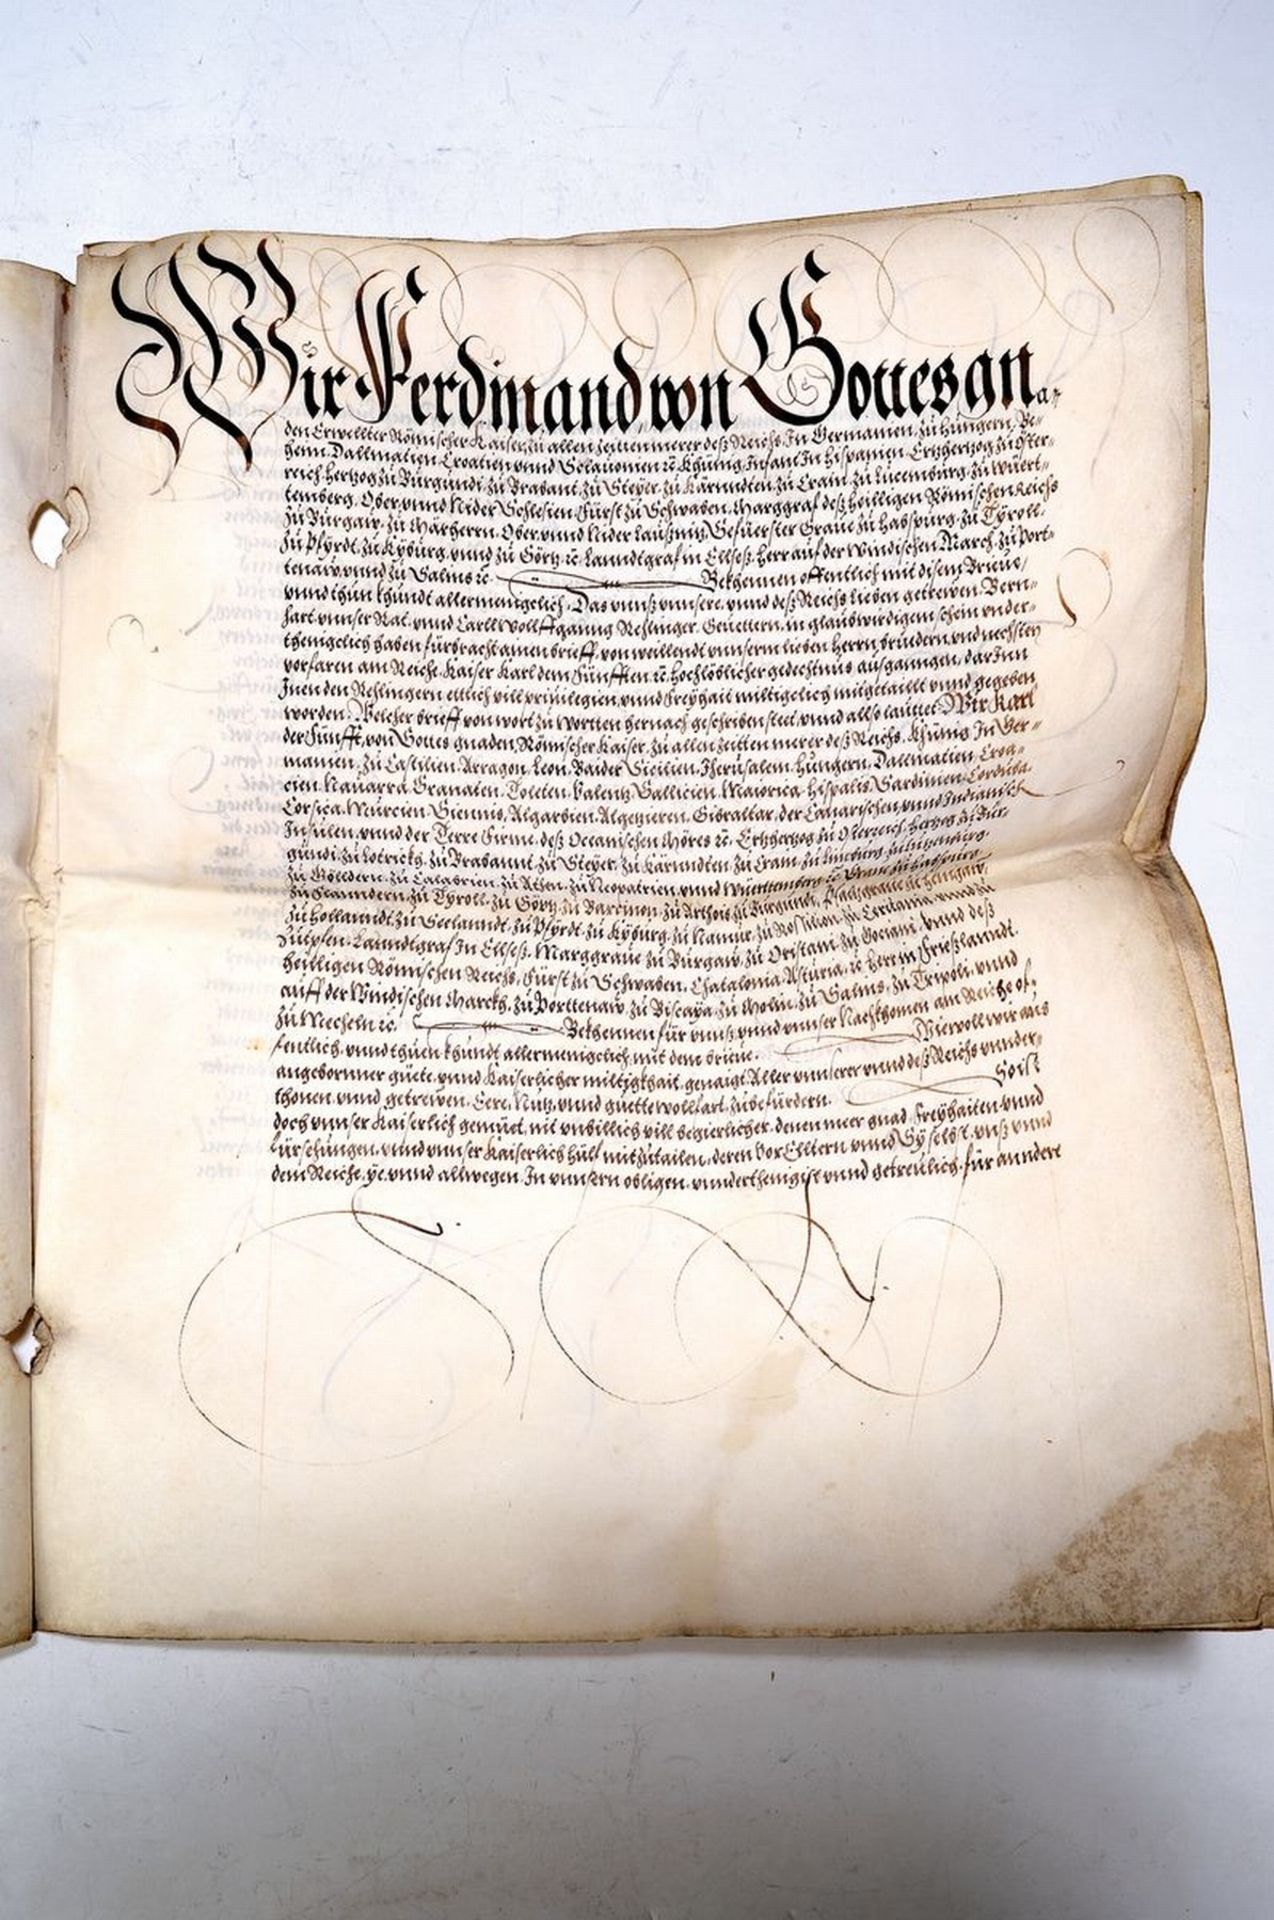 Wir Ferdinand von Gottes gna-
den Erwellter Römischer Kaiser, zu allen zeitten merer deß Reichs, In Germanien, zu Hungern, Be-
heim, Dallmatien, Croatien, vnnd Sclauonien ꝛc. Khünig, Infant In Hispanien, Ertzhertzog zu Öster-
reich, Hertzog zu Burgundi, zu Brabant, zu Steyer, zu Kärnndten, zu Crain, zu Lucemburg, zu Wuert-
temberg, Ober, vnnd Nider Schlesien, Fürst zu Schwaben, Marggraf deß heilligen Römischen Reichs
zu Burgaw, zu Märherrn, Ober, vnnd Nider Laußnitz, Gefuerster Graue zu Habspurg, zu Tyroll,
zu Pfyrdt, zu Kyburg, vnnd zu Görtz ꝛc. Lanndtgraf in Ellseß, Herr auf der Windischen March, zu Port-
tenaw, vnnd zu Salins ꝛc. Bekhennen offentlich mit disem Brieue,
vnnd thun khundt allermenigelich, Das vnnß vnnsere, vnnd deß Reichs lieben getrewen, Bern-
hart vnnser Rat, vnnd Carll Wollffganng Rehlinger, Geuettern, in glaubwirdigem schein vnder-
thenigelich haben fürbracht, amen brieff, von weillendt vnnserm lieben Herrn, brudern, vnd nechsten
vorfaren am Reiche, Kaiser Karl dem Fünfften ꝛc. hochlöblicher gedechtnus ausganngen, dar Inn
Inen den Rehlingern ettlich vill priuilegien, vnnd Freyhait miltigelich mitgetaillt vnnd gegeben
worden, Welcher brieff von wort zu wortten hernach geschriben stet, vnnd allso lauttet, Wir Karl
der Fünfft, von Gottes gnaden, Römischer Kaiser, zu allen zeitten merer deß Reichs, Khünig In Ger-
manien, zu Castilien, Arragon, Leon, Baider Sicilien, Jherusalem, Hungern, Dallmatien, Croa-
cien, Nauarra, Granaten, Toleten, Valentz, Gallicien, Maiorica, Hispalis, Sardinien, Corduba,
Corsica, Murcien, Giennis, Algarbien, Algezieren, Gibraltar, der Canarischen, vnnd Indianisch
Insulen, vnnd der Terre Firme, deß Oceanischen Möres ꝛc. Ertzhertzog zu Österreich, Hertzog zu Bur-
gundi, zu Lotrickh, zu Brabannt, zu Steyer, zu Kärnndten, zu Crain, zu Limburg, zu Lutzenburg,
zu Gelldern, zu Calabrien, zu Athen, zu Neopatrien, vnnd Württemberg ꝛc. Graue zu Habspurg,
zu Flanndern, zu Tyroll, zu Görtz, zu Barcinon, zu Arthois, zu Burgundi, Phaltzgraue zu Henigaw,
zu Hollanndt, zu Seelanndt, zu Pfyrdt, zu Kyburg, zu Namur, zu Rossilion, zu Ceritania, vnnd zu
Zutpfen, Lanndtgraf In Ellseß, Marggraue zu Burgaw, zu Oristani, zu Gociani, vnnd deß
heilligen Römischen Reichs, Fürst zu Schwaben, Chatalonia, Asturia, ꝛc. Herr in Frießlanndt,
auff der Windischen Marckh, zu Porttenaw, zu Biscaya, zu Molin, zu Salins, zu Tripoli, vnnd
zu Mecheln ꝛc. Bekhennen für vnnß, vnnd vnnser Nachkhomen am Reiche of-
fentlich, vnnd thuen khundt allermenigelich, mit dem brieue. Wiewoll wir aus
angebornner güete, vnnd Kaiserlicher miltigkhait, genaigt, Aller vnnserer vnnd deß Reichs vnnder-
thonen, vnnd getrewen, Eere, Nutz, vnnd guette wollfart, zubefürdern. So ist
doch vnnser Kaiserlich gemüet, nit vnbillich vill begierlicher, denen meer gnad, Freyhaiten, vnnd
fürsehungen, vnnd vnnser Kaiserlich hülf mitzutailen, deren Vor Elltern, vnnd Sy selbst, vnß vnnd
dem Reiche, ye, vnnd allwegen, In vnnsern obligen, vnnderthenigist vnnd getreulich, für anndere